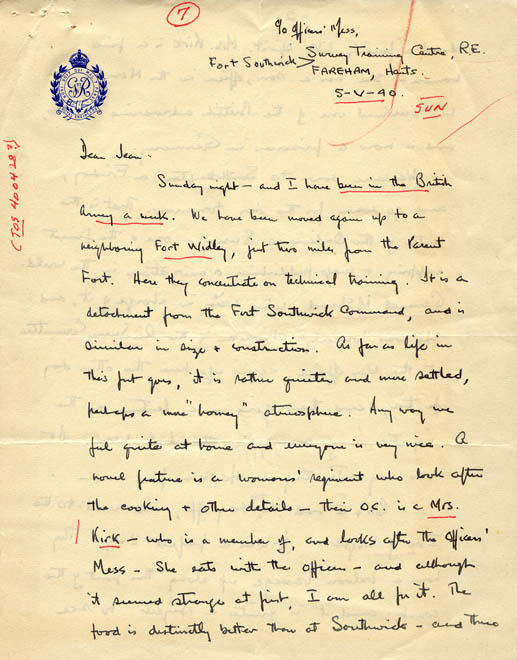 7
c/o Officers' Mess,
Survey Training Centre, R.E.
Fort Southwick >
FAREHAM, Hants.
5-V-40.
SUN
GR
Dear Jean.
Sunday night - and I have been in the British
Army a week. We have been moved again up to a
neighboring Fort Widley, just two miles from the Parent
Fort. Here they concentrate on technical training. It is a
detachment from the Fort Southwick Command, and is
similar in size + construction. As far as life in
this fort goes, it is rather quieter and more settled,
perhaps a more "homey" atmosphere. Any way we
feel quite at home and everyone is very nice. A
novel feature is a womens' regiment who look after
the cooking + other details - their O.C. is a Mrs.
Kirk - who is a member of, and looks after the Officers'
Mess - She eats with the officers - and although
it seemed strange at first, I am all for it. The
food is distinctly better than at Southwick - and three